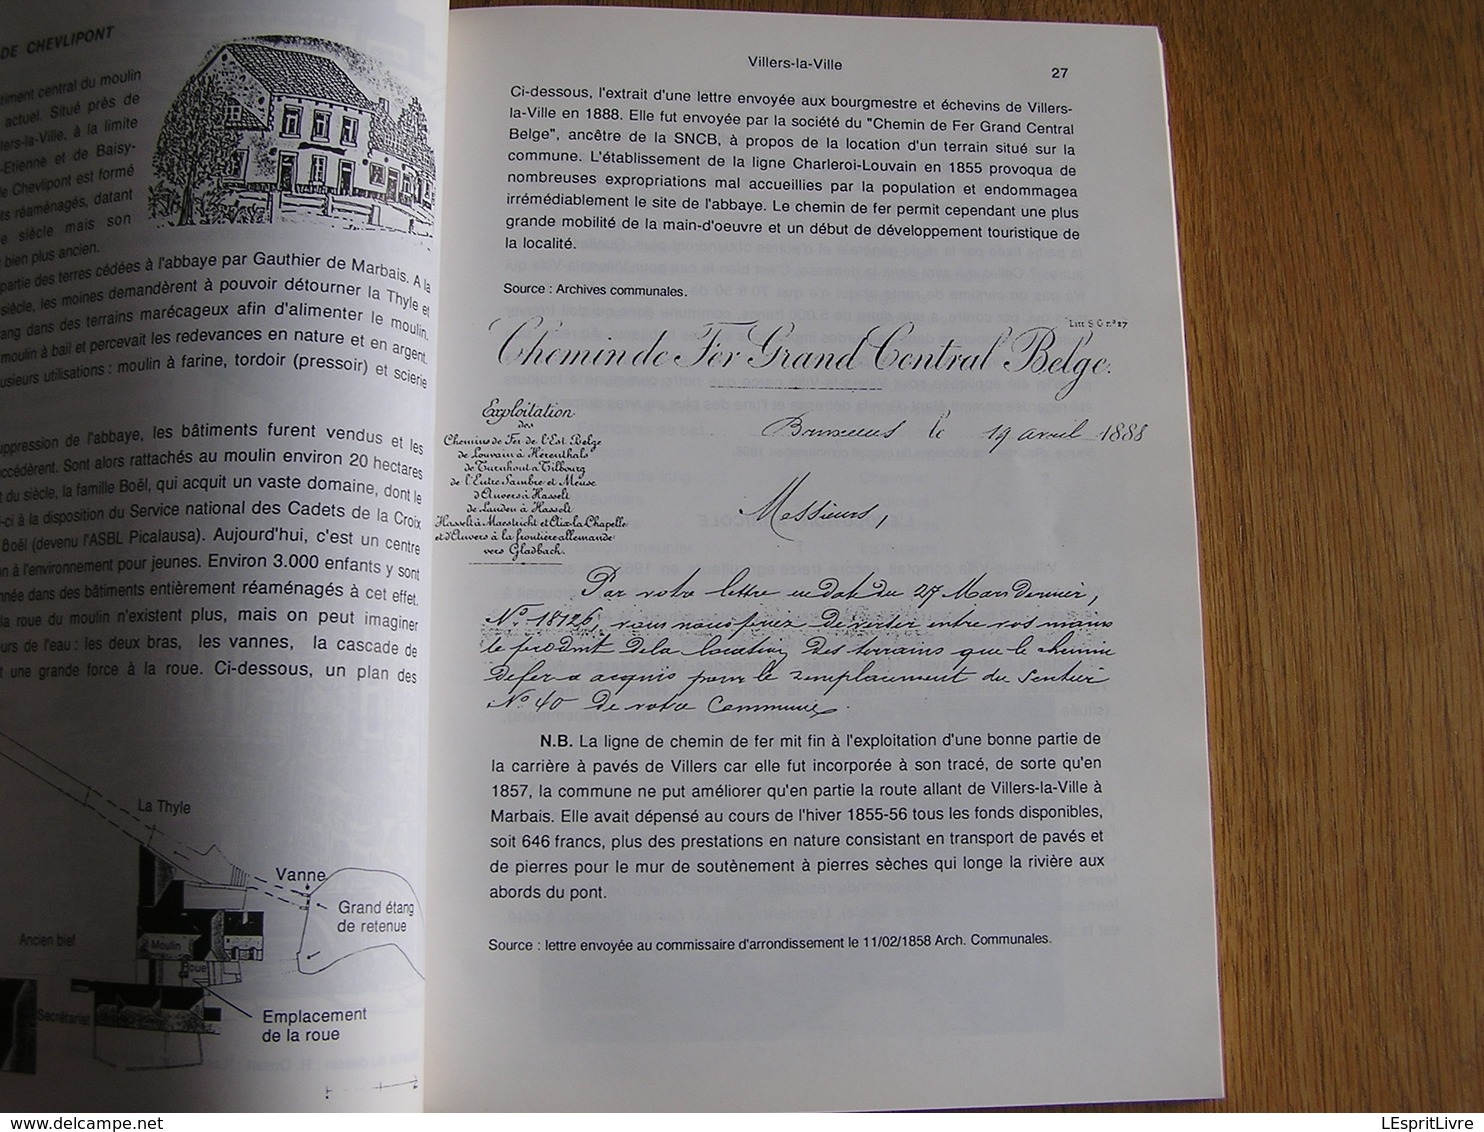 DE CHEVLIPONT
timent central du moulin
actuel. Situé près de
lers-la-Ville, à la limite
-Etienne et de Baisy-
de Chevlipont est formé
ts réaménagés, datant
e siècle mais son
bien plus ancien.
partie des terres cédées à l'abbaye par Gauthier de Marbais. A la
siècle, les moines demandèrent à pouvoir détourner la Thyle et
ang dans des terrains marécageux afin d'alimenter le moulin.
moulin à bail et percevait les redevances en nature et en argent.
usieurs utilisations : moulin à farine, tordoir (pressoir) et scierie
uppression de l'abbaye, les bâtiments furent vendus et les
ccédèrent. Sont alors rattachés au moulin environ 20 hectares
t du siècle, la famille Boël, qui acquit un vaste domaine, dont le
i-ci à la disposition du Service national des Cadets de la Croix
Boël (devenu l'ASBL Picalausa). Aujourd'hui, c'est un centre
n à l'environnement pour jeunes. Environ 3.000 enfants y sont
nnée dans des bâtiments entièrement réaménagés à cet effet.
la roue du moulin n'existent plus, mais on peut imaginer
urs de l'eau : les deux bras, les vannes, la cascade de
t une grande force à la roue. Ci-dessous, un plan des
La Thyle
Vanne
Grand étang
de retenue
Ancien bief
Moulin
oue
Secrétariat
Emplacement
de la roue
Villers-la-Ville
27
Ci-dessous, l'extrait d'une lettre envoyée aux bourgmestre et échevins de Villers-
la-Ville en 1888. Elle fut envoyée par la société du "Chemin de Fer Grand Central
Belge", ancêtre de la SNCB, à propos de la location d'un terrain situé sur la
commune. L'établissement de la ligne Charleroi-Louvain en 1855 provoqua de
nombreuses expropriations mal accueillies par la population et endommagea
irrémédiablement le site de l'abbaye. Le chemin de fer permit cependant une plus
grande mobilité de la main-d'oeuvre et un début de développement touristique de
la localité.
Source : Archives communales.
Litt S G n.° 27
Chemin de Fer Grand Central Belge.
Exploitation
des
Chemins de Fer de l'Est Belge
de Louvain à Hérenthals
de Turnhout à Tilbourg
de l'Entre Sambre et Meuse
d'Anvers à Hasselt
de Landen à Hasselt
Hasselt à Maestricht et Aix-la-Chapelle
et d'Anvers à la frontière allemande
vers Gladbach.
Bruxelles le 19 avril 1888
Messieurs,
Par votre lettre en date du 27 Mars dernier,
N° 18126, vous nous priez de verser entre vos mains
le produit de la location des terrains que le chemin
de fer a acquis pour le remplacement du sentier
N° 40 de votre Commune.
N.B. La ligne de chemin de fer mit fin à l'exploitation d'une bonne partie de
la carrière à pavés de Villers car elle fut incorporée à son tracé, de sorte qu'en
1857, la commune ne put améliorer qu'en partie la route allant de Villers-la-Ville à
Marbais. Elle avait dépensé au cours de l'hiver 1855-56 tous les fonds disponibles,
soit 646 francs, plus des prestations en nature consistant en transport de pavés et
de pierres pour le mur de soutènement à pierres sèches qui longe la rivière aux
abords du pont.
Source : lettre envoyée au commissaire d'arrondissement le 11/02/1858 Arch. Communales.
LEspritLivre